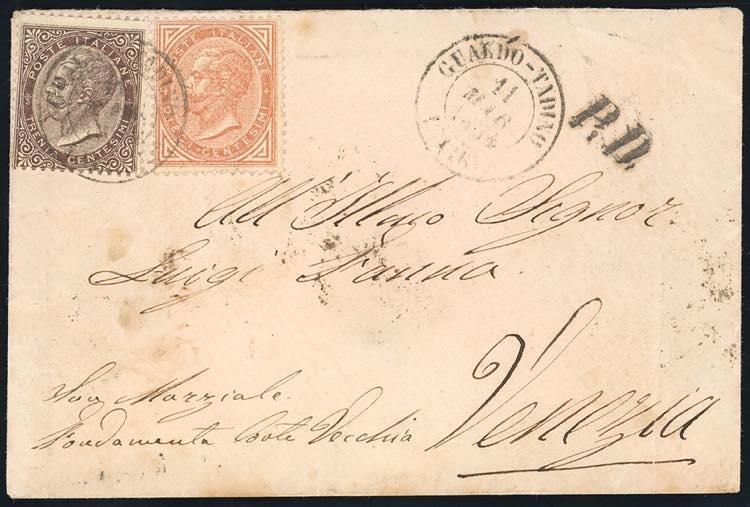 POSTE ITALIANE
TRENTA CENTESIMI
POSTE ITALIANE
CENTESIMI
GUALDO-TADINO
11
MAR
P.D.
All' Illmo Signor
Luigi Fanna
San Marziale
Fondamenta Corte Vecchia
Venezia